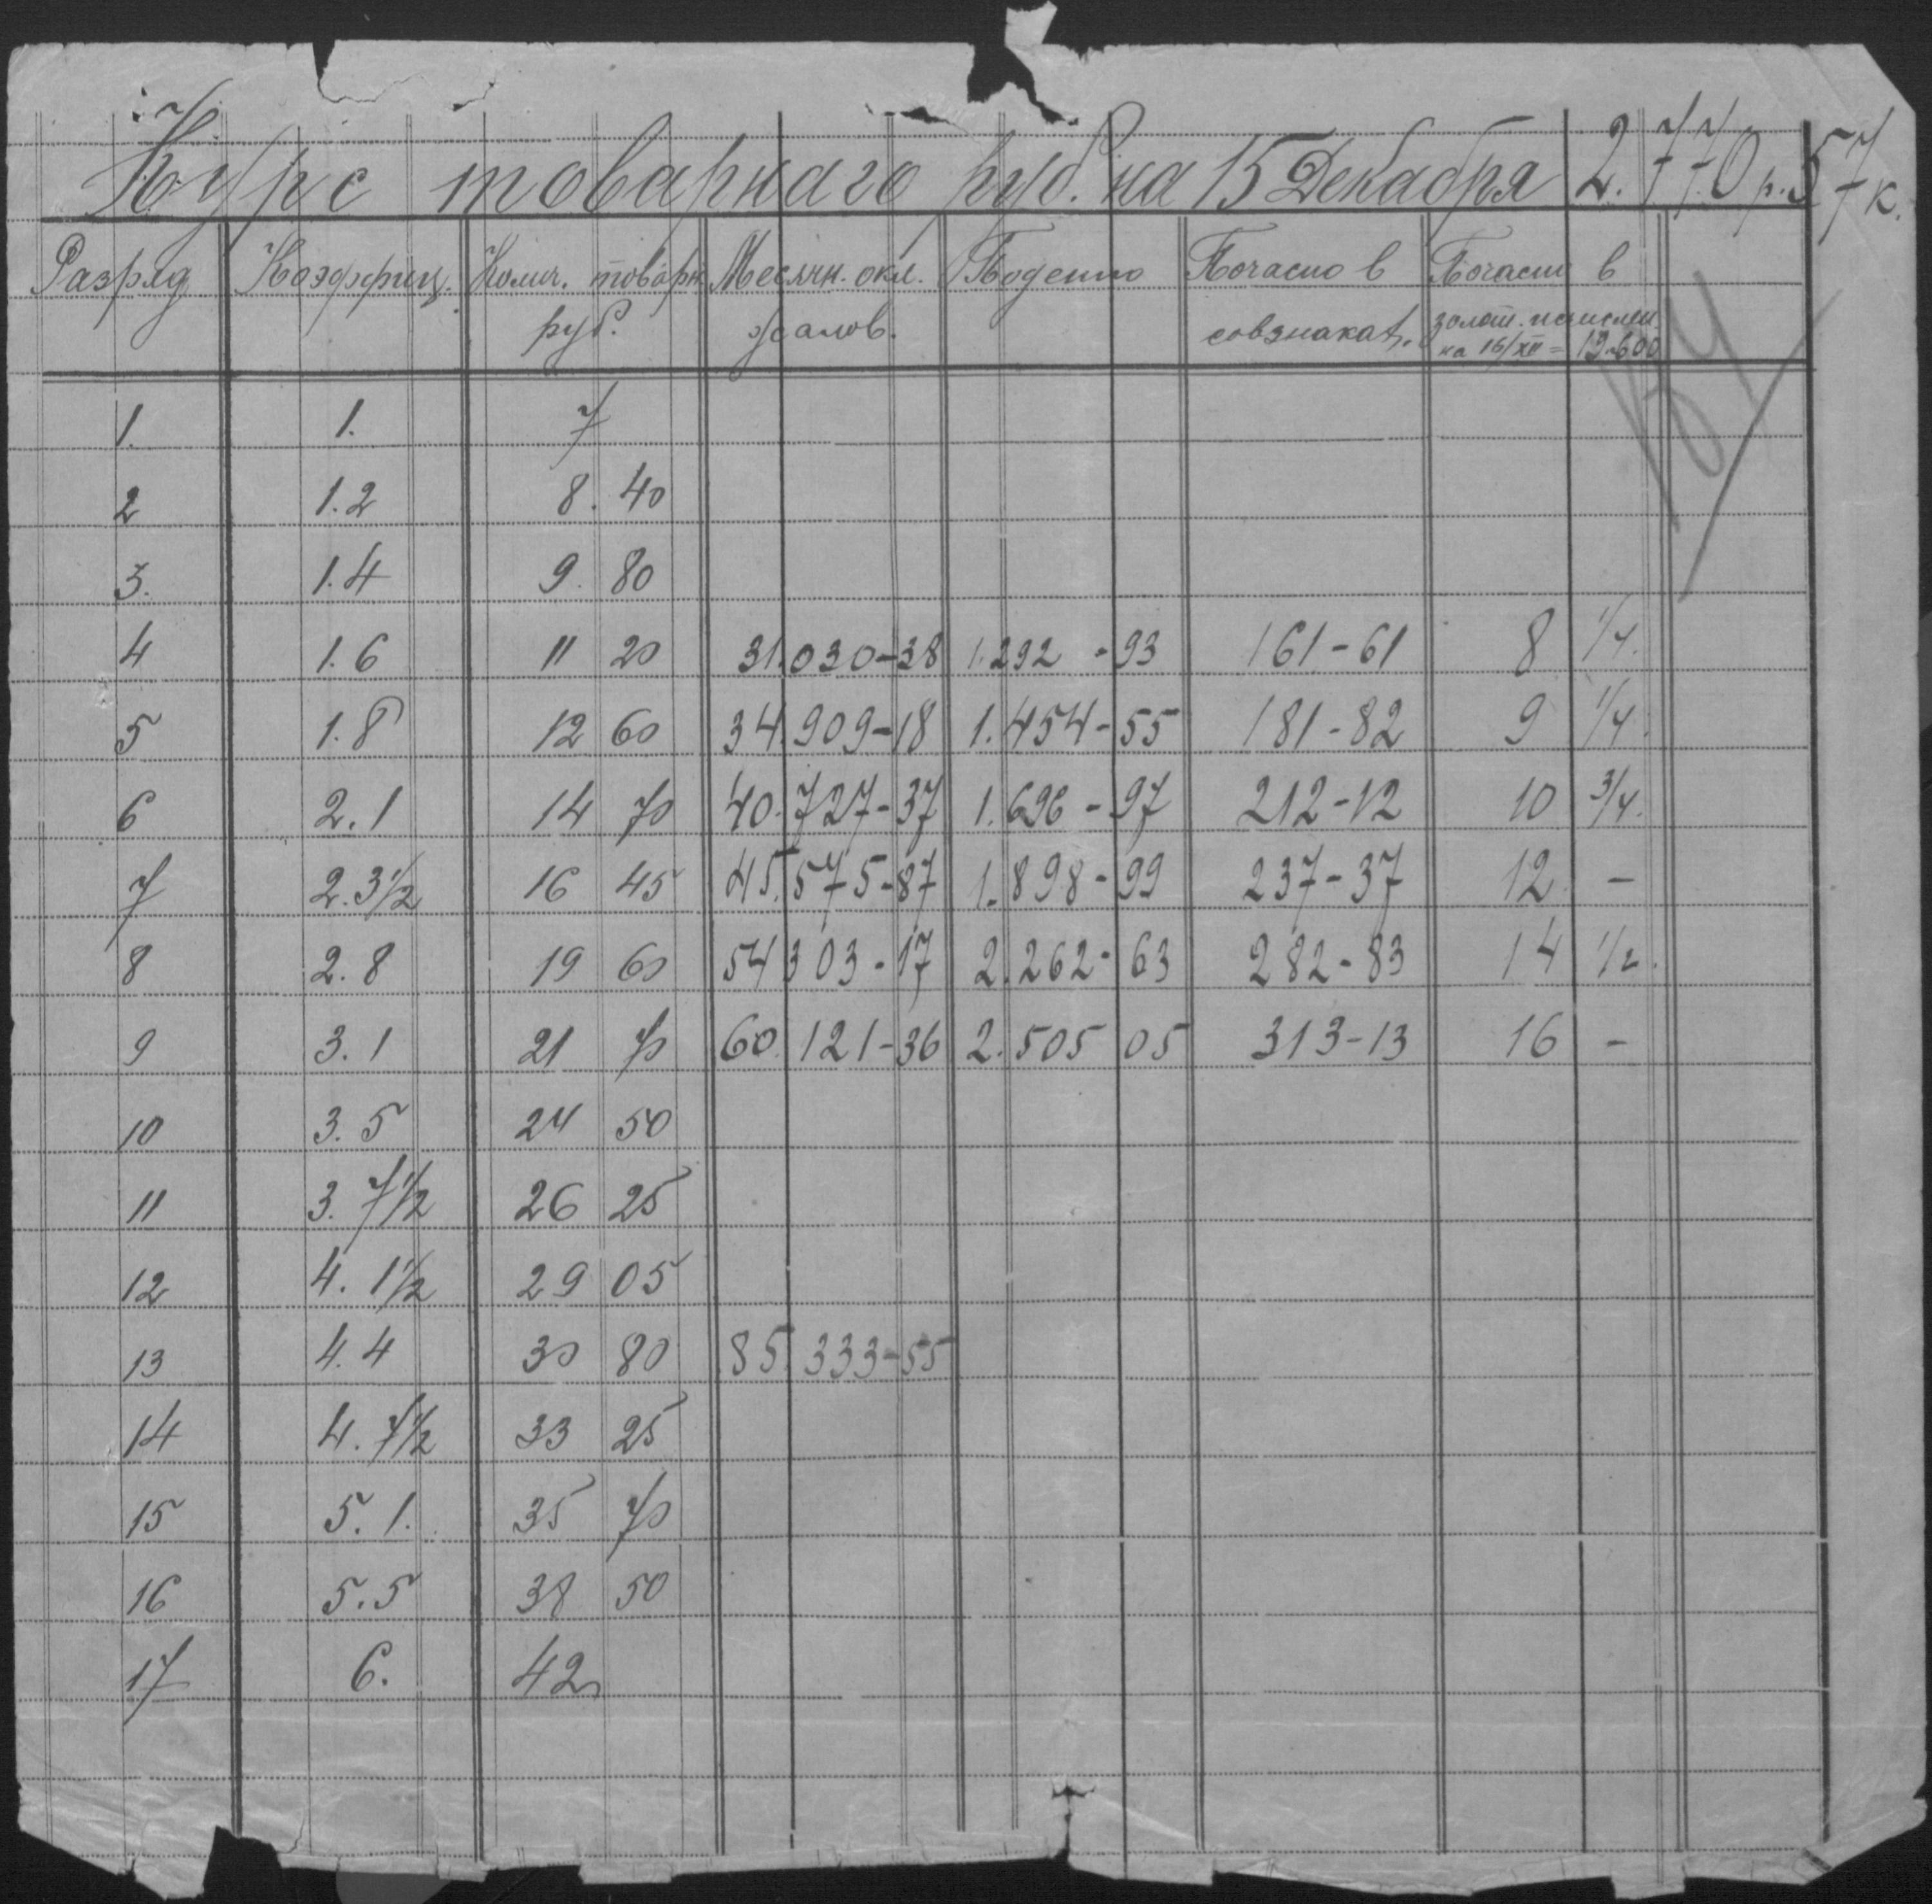 Курс товарнаго руб. на 15 Декабря 2.770 р. 57 к.
Разряд Коэффиц. Колич. товарн. Месячн. окл. Поденно Почасно в Почасно в
руб. жалов. совзнаках. золот. исчислен.
на 16/XII = 19.600
1. 1. 7
2 1.2 8.40
3. 1.4 9.80
4 1.6 11 20 31.030-38 1.292-93 161-61 8 1/4.
5 1.8 12 60 34.909-18 1.454-55 181-82 9 1/4.
6 2.1 14 70 40.727-37 1.696-97 212-12 10 3/4.
7 2.3 1/2 16 45 45.575-87 1.898-99 237-37 12 -
8 2.8 19 60 54303-17 2.262-63 282-83 14 1/2.
9 3.1 21 70 60.121-36 2.505 05 313-13 16 -
10 3.5 24 50
11 3.7 1/2 26 25
12 4.1 1/2 29 05
13 4.4 30 80 85.333-55
14 4.7 1/2 33 25
15 5.1. 35 70
16 5.5 38 50
17 6. 42